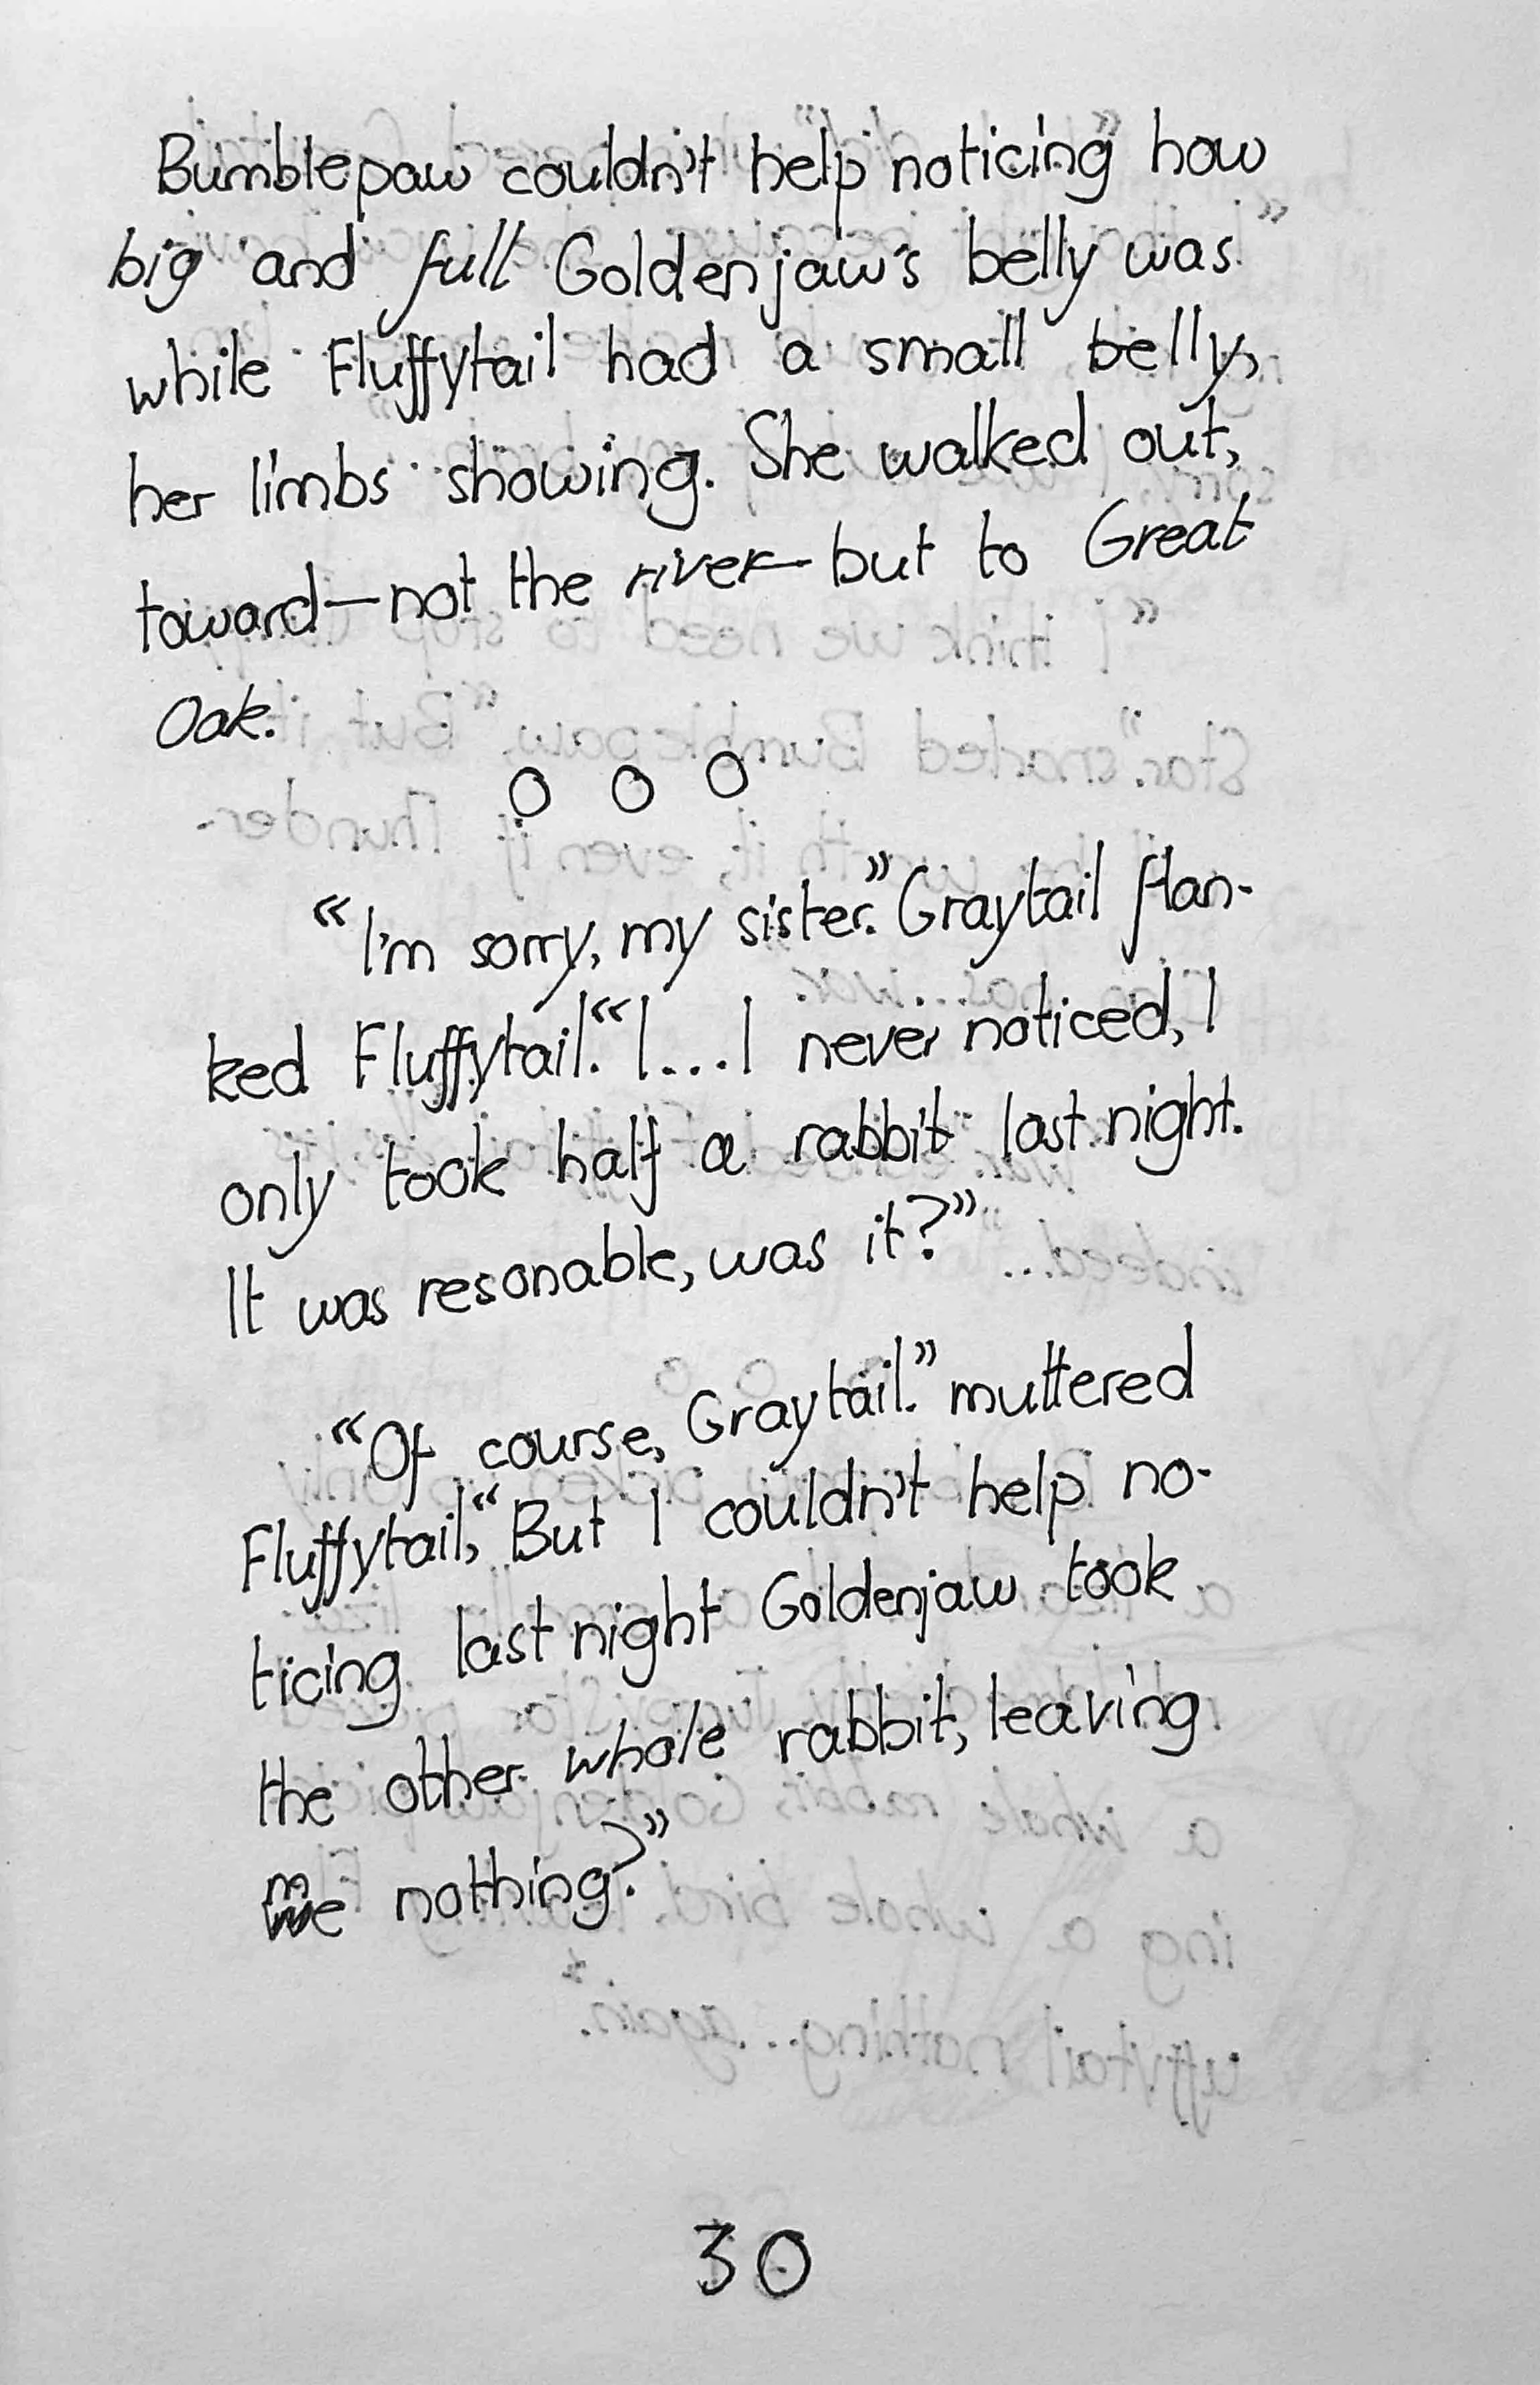 Bumblepaw couldn't help noticing how
big and full Goldenjaw's belly was
while Fluffytail had a small belly,
her limbs showing. She walked out,
toward—not the river—but to Great
Oak.
O O O
"I'm sorry, my sister." Graytail flan-
ked Fluffytail. "I...I never noticed, I
only took half a rabbit last night.
It was resonable, was it?"
"Of course, Graytail." muttered
Fluffytail, "But I couldn't help no-
ticing last night Goldenjaw took
the other whole rabbit, leaving
me nothing?"
30